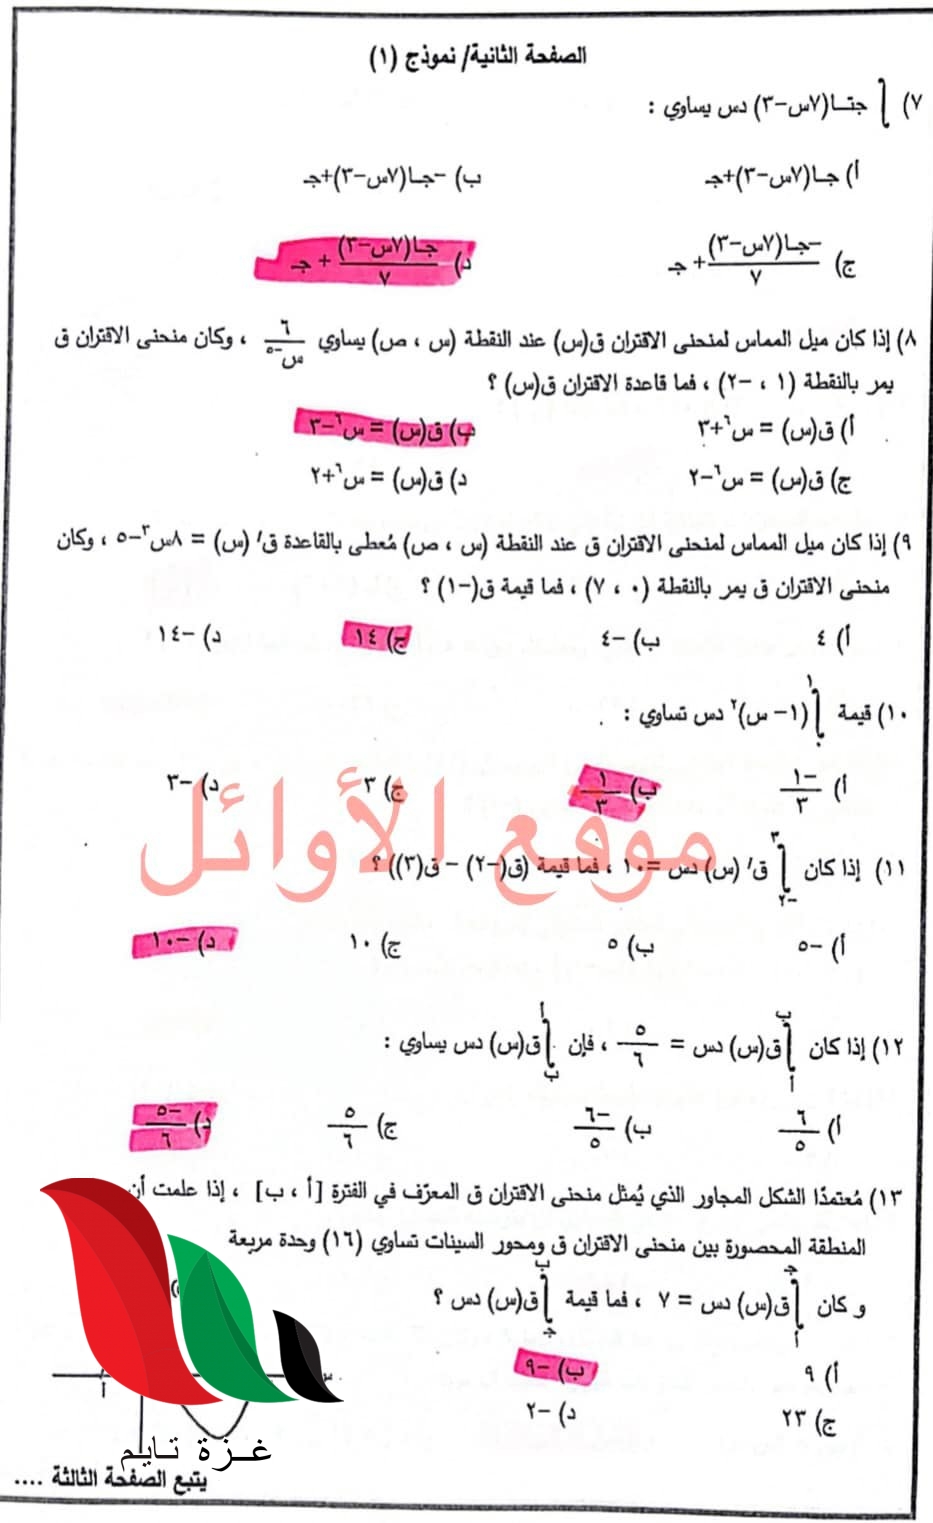 الصفحة الثانية/ نموذج (١)
٧) ∫ جتـا(٧س−٣) دس يساوي :
أ) جـا(٧س−٣)+جـ ب) −جـا(٧س−٣)+جـ
ج) −جـا(٧س−٣)/٧ + جـ د) جـا(٧س−٣)/٧ + جـ
٨) إذا كان ميل المماس لمنحنى الاقتران ق(س) عند النقطة (س ، ص) يساوي ٦/س^−٥ ، وكان منحنى الاقتران ق
يمر بالنقطة (١ ، −٢) ، فما قاعدة الاقتران ق(س) ؟
أ) ق(س) = س^٦+٣ ب) ق(س) = س^٦−٣
ج) ق(س) = س^٦−٢ د) ق(س) = س^٦+٢
٩) إذا كان ميل المماس لمنحنى الاقتران ق عند النقطة (س ، ص) مُعطى بالقاعدة ق/ (س) = ٨س^٣−٥ ، وكان
منحنى الاقتران ق يمر بالنقطة (٠ ، ٧) ، فما قيمة ق(−١) ؟
أ) ٤ ب) −٤ ج) ١٤ د) −١٤
١٠) قيمة ∫ (١− س)^٢ دس تساوي :
أ) −١/٣ ب) ١/٣ ج) ٣ د) −٣
موقع الأوائل
١١) إذا كان ∫_−٢^٣ ق/ (س) دس = ١٠ ، فما قيمة (ق(−٢) − ق(٣)) ؟
أ) −٥ ب) ٥ ج) ١٠ د) −١٠
١٢) إذا كان ∫_أ^ب ق(س) دس = ٥/٦ ، فإن ∫_ب^أ ق(س) دس يساوي :
أ) ٦/٥ ب) −٦/٥ ج) ٥/٦ د) −٥/٦
١٣) مُعتمدًا الشكل المجاور الذي يُمثل منحنى الاقتران ق المعرّف في الفترة [أ ، ب] ، إذا علمت أن
المنطقة المحصورة بين منحنى الاقتران ق ومحور السينات تساوي (١٦) وحدة مربعة
و كان ∫_أ^جـ ق(س) دس = ٧ ، فما قيمة ∫_جـ^ب ق(س) دس ؟
أ) ٩ ب) −٩
ج) ٢٣ د) −٢
أ
س
غـزة تـايم
يتبع الصفحة الثالثة ....